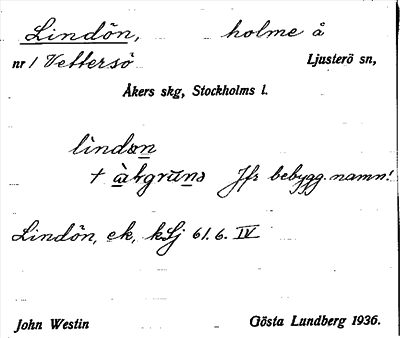 Lindön, holme å
nr 1 Vettersö Ljusterö sn,
Åkers skg, Stockholms l.
lìndøn
+ àkgruns Jfr bebygg. namn!
Lindön, ek, kLj 61.6. IV
John Westin Gösta Lundberg 1936.